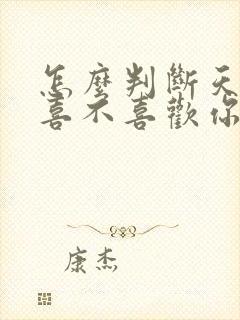 怎麼判斷天
喜不喜歡你
康杰